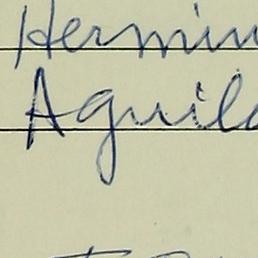 Hermin
Aguila